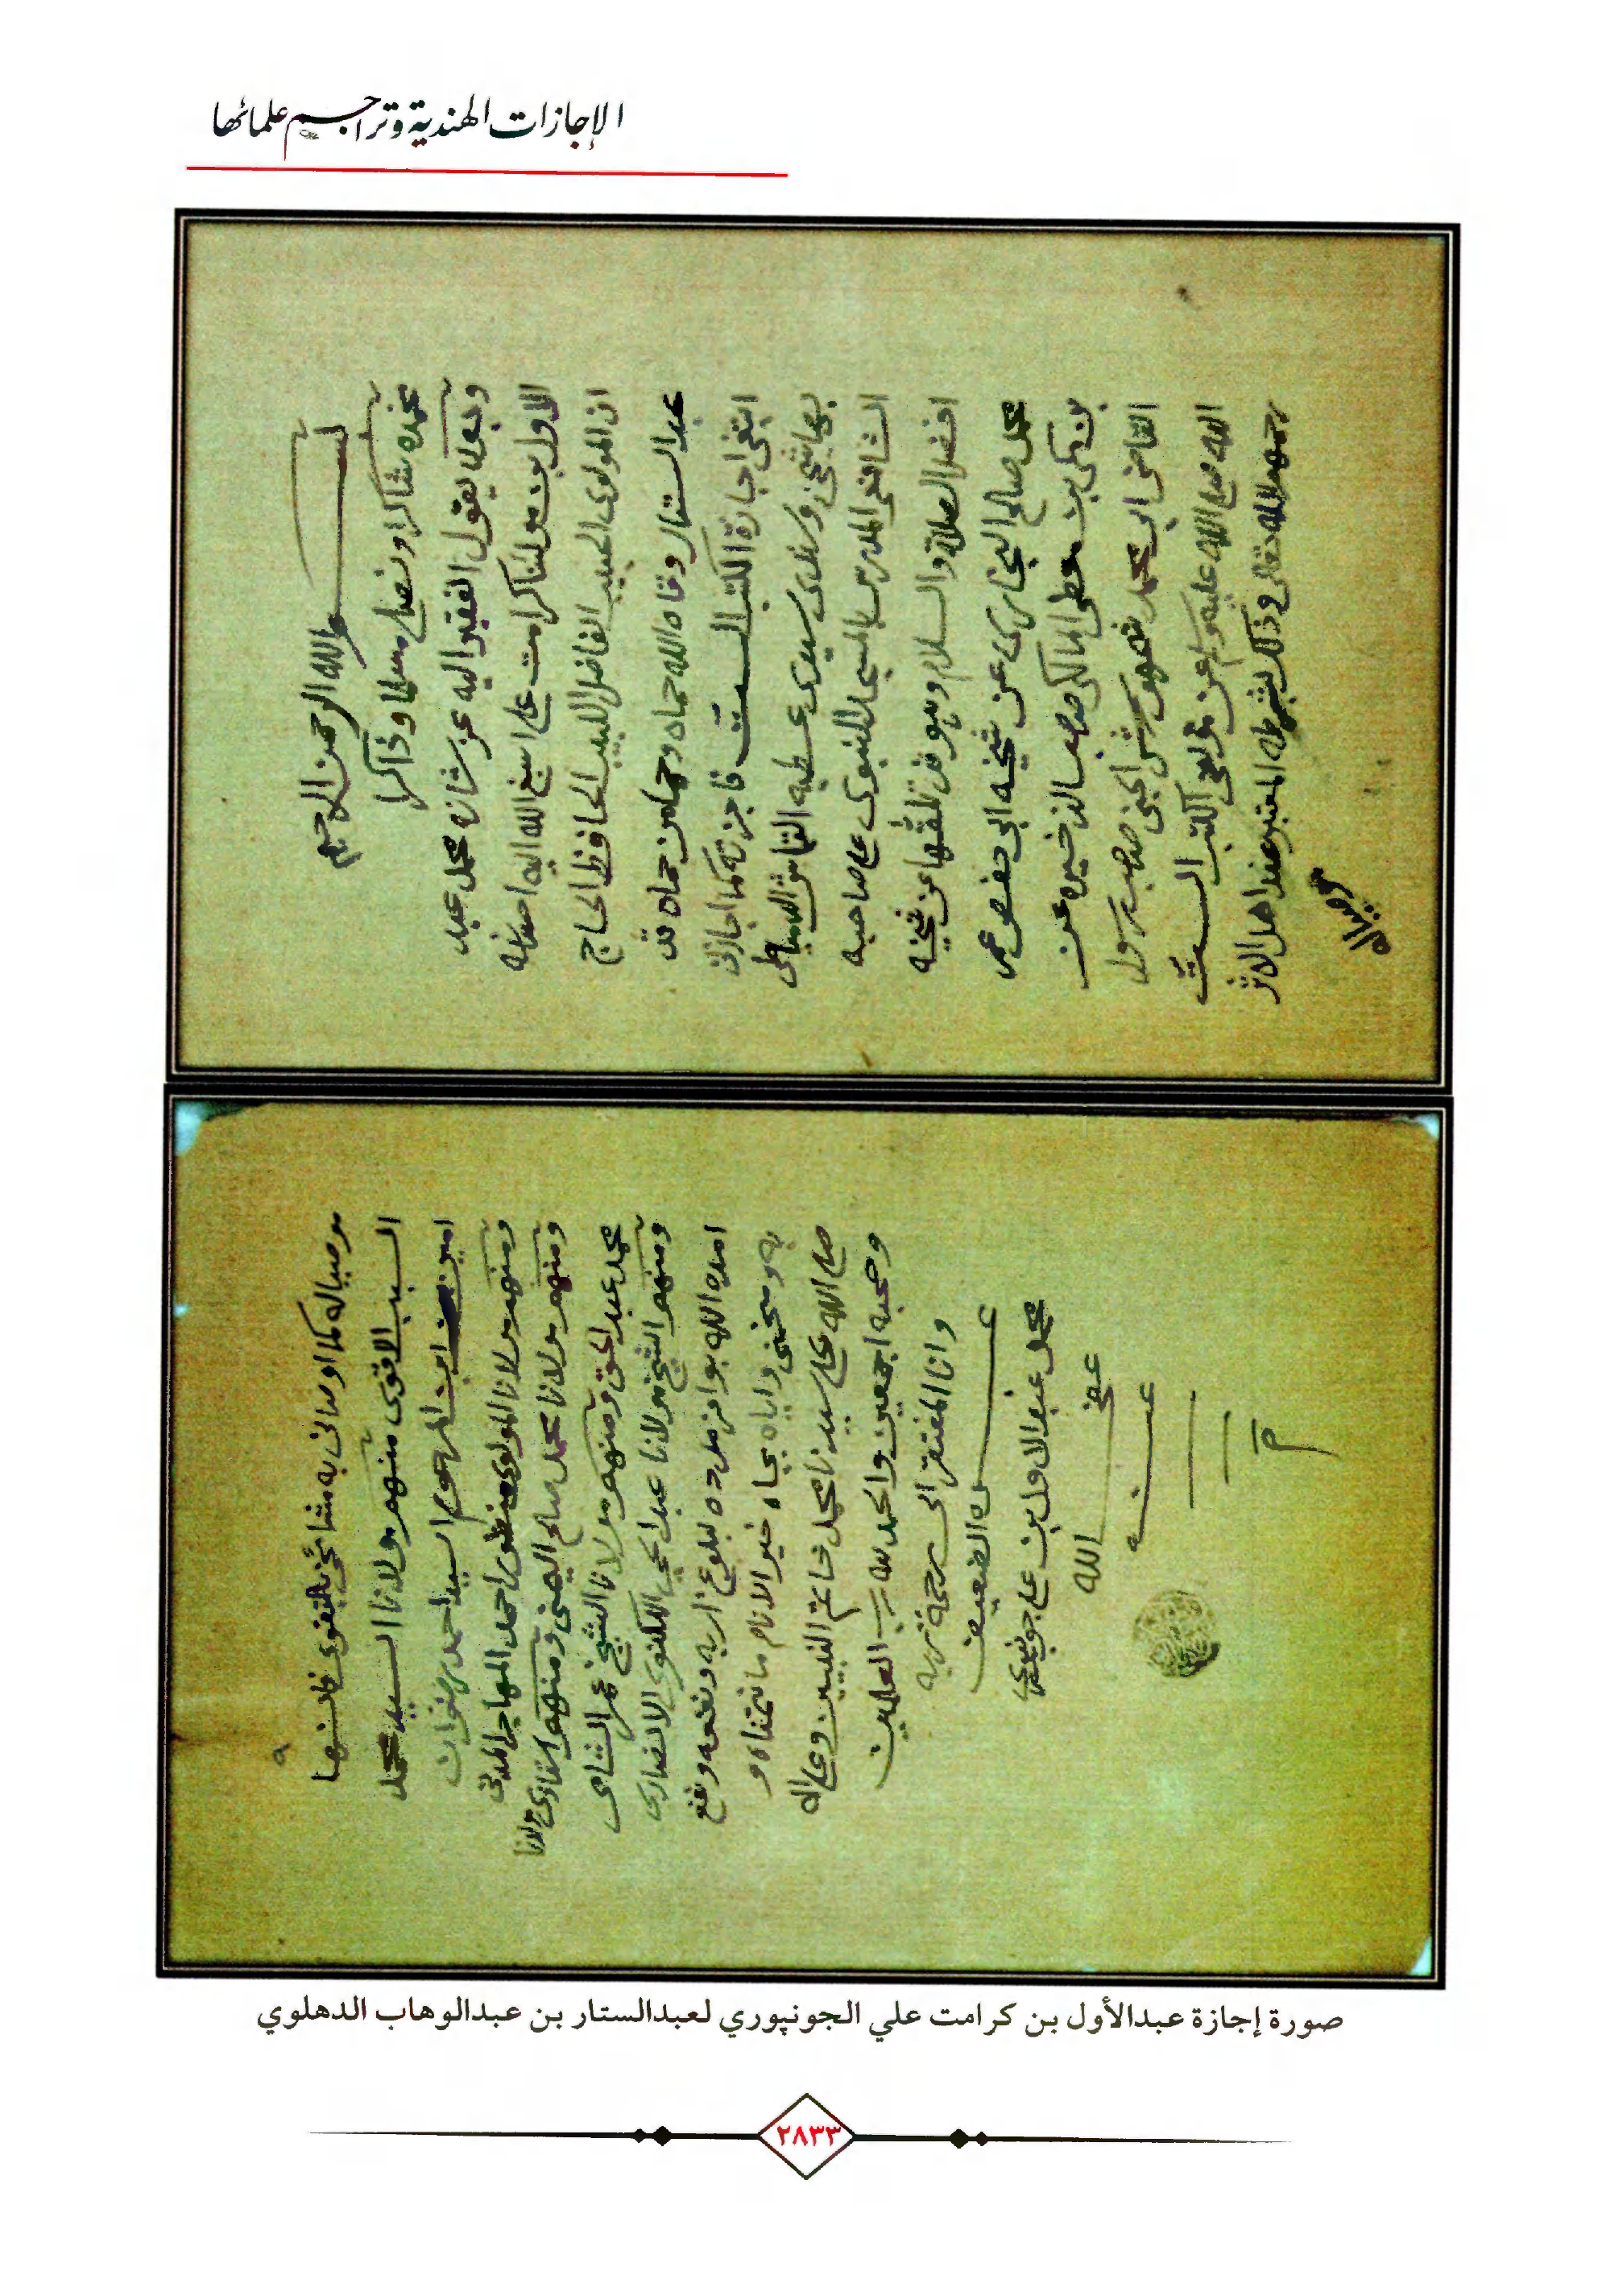 الإجازات الهندية وتراجم علمائها
بسم الله الرحمن الرحيم
نحمده شاكرا ونصلي مسلما وذاكرا
وبعد يقول الفقير اليه عز شانه محمد عبد
الاول بن مولنا كرامت علي اسبغ الله اليه احسانه
ان المولوي الحبيب الفاضل اللبيب الحافظ الحاج
عبد الستار وقاه الله حماه وحماه من حماه قد
ابتغى اجازة الكتب الستة فاجزته كما اجازني
بها شيخي وسندي سيدي عطيه القماش الدمياطي
الشافعي المدرس بالمسجد النبوي على صاحبه
افضل الصلاة والسلام وهو قد تلقها عن شيخه
محمد صالح البخاري عن شيخه ابي حفص عمر
بن مكي بن معطى المالكي صاحب الذخيره عن
القاضي ابي محمد شمهورش الجني صاحب رسول
الله صلى الله عليه وسلم عن مولفي الكتب الستة
رحمهم الله تعالى وذلك بشرطه المعتبر عند اهل الاثر
موصياله
موصياله كما اوصاني به مشائخي بالتقوى فانها
السبب الاقوى منهم مولانا السيد محمد
امين ابن المرحوم السيد احمد رضوان
ومنهم مولانا المولوي منظور احمد المهاجر المدني
ومنهم مولانا محمد صالح اليمني ومنهم استاذي مولانا
محمد عبد الحق ومنهم مولانا الشيخ عمر الشامي
ومنهم الشيخ مولانا عبد الحي اللكنوي الانصاري
امده الله بوافر مدده لبلوغ اربه ونفعه ونفع
به ومنحني واياه بجاه خير الانام ما نتمناه و
صلى الله على سيدنا محمد خاتم النبيين وعلى اله
وصحبه اجمعين والحمد لله رب العالمين
وانا المفتقر الى رحمة ربه
عبده الضعيف
محمد عبد الاول بن علي جونفوري
عفى الله
عنه
م
صورة إجازة عبدالأول بن كرامت علي الجونپوري لعبدالستار بن عبدالوهاب الدهلوي
٢٨٣٣